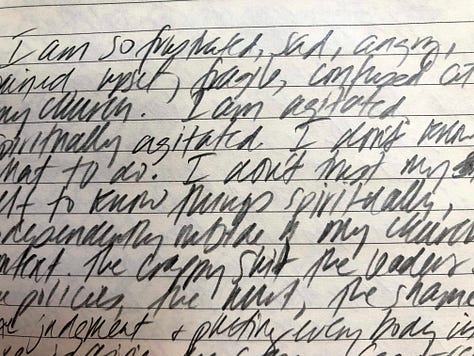 I am so frustrated, sad, angry,
ained upset, fragile, confused at
my church. I am agitated
spiritually agitated. I don't know
hat to do. I don't trust my
elf to know things spiritually,
dependently outside of my church
ntext. The crappy shit the leaders
e policies, the hurt, the shame
judgment + putting every body in